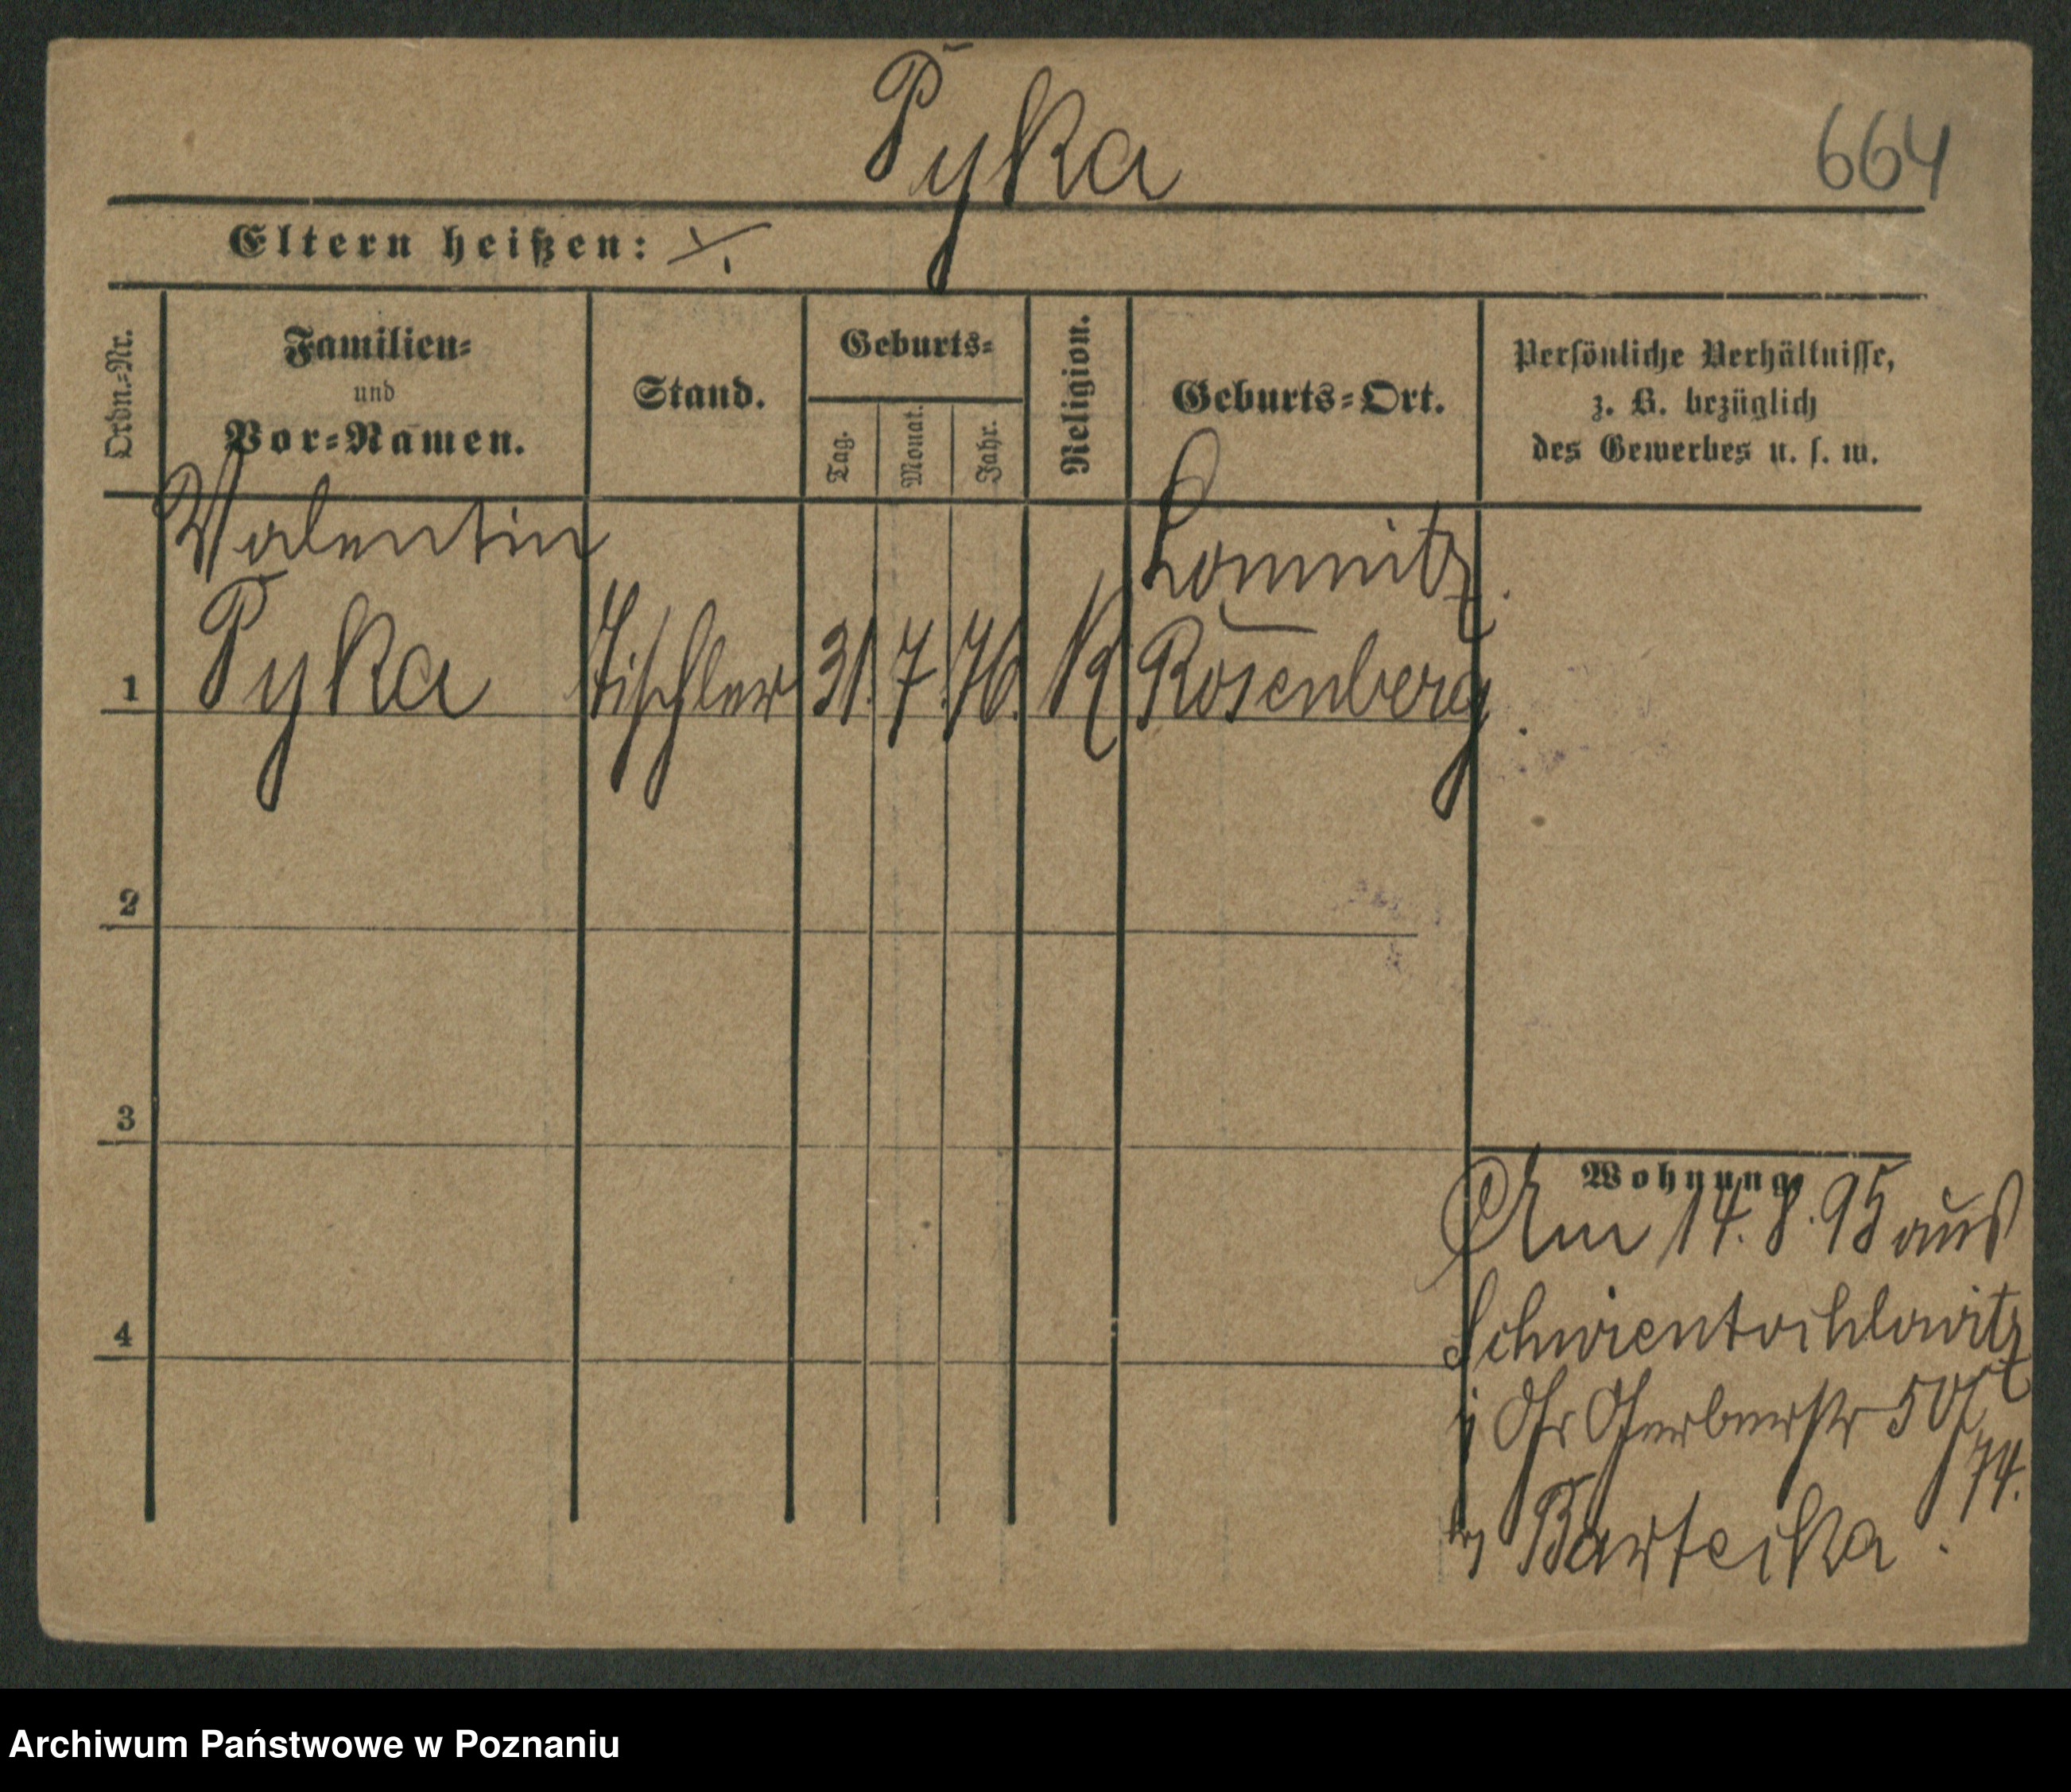 Pyka
664
Eltern heißen:
Ordn.-Nr.
Familien-
und
Vor-Namen.
Stand.
Geburts-
Tag.
Monat.
Jahr.
Religion.
Geburts-Ort.
Persönliche Verhältnisse,
z. B. bezüglich
des Gewerbes u. s. w.
Valentin
Lomnitz.
1 Pyka Tischler 31. 7. 76. K Rosenberg.
2
3
4
Wohnung.
Am 14. 8. 95 aus
Schwientochlowitz
Gr Gerberstr 50
74.
Barteika.
Archiwum Państwowe w Poznaniu